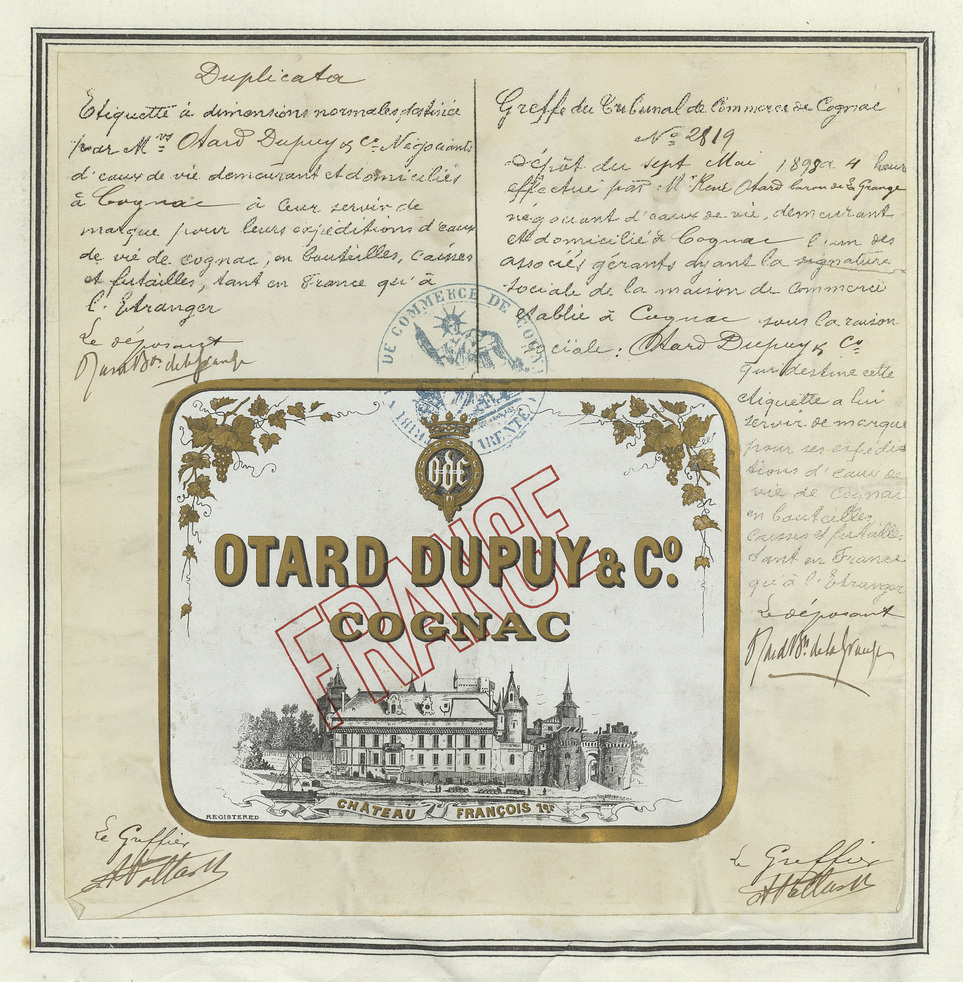 Duplicata
Etiquette à dimensions normales destinée
par Mrs Otard Dupuy & Co Négociants
d'eaux de vie demeurant et domiciliés
à Cognac à leur servir de
marque pour leurs expéditions d'eaux
de vie de cognac, en bouteilles, caisses
et futailles, tant en France qu'à
l'Etranger
Le déposant
Greffe du Tribunal de Commerce de Cognac
No 2819
Dépôt du sept Mai 4 heures
effectué par Mr René Otard baron de la Grange
négociant d'eaux-de-vie, demeurant
et domicilié à Cognac l'un des
associés gérants ayant la signature
sociale de la maison de commerce
établie à Cognac sous la raison
ciale: Otard Dupuy & Co
qui destine cette
étiquette a lui
servir de marque
pour ses expédi
tions d'eaux de
vie de Cognac
en bouteilles,
caisses et futailles
tant en France
qu'à l'Etranger
Le déposant
DE COMMERCE DE COGN
OTARD DUPUY & Co.
COGNAC
FRANCE
CHÂTEAU FRANÇOIS 1er
REGISTERED
Le Greffier
Le Greffier